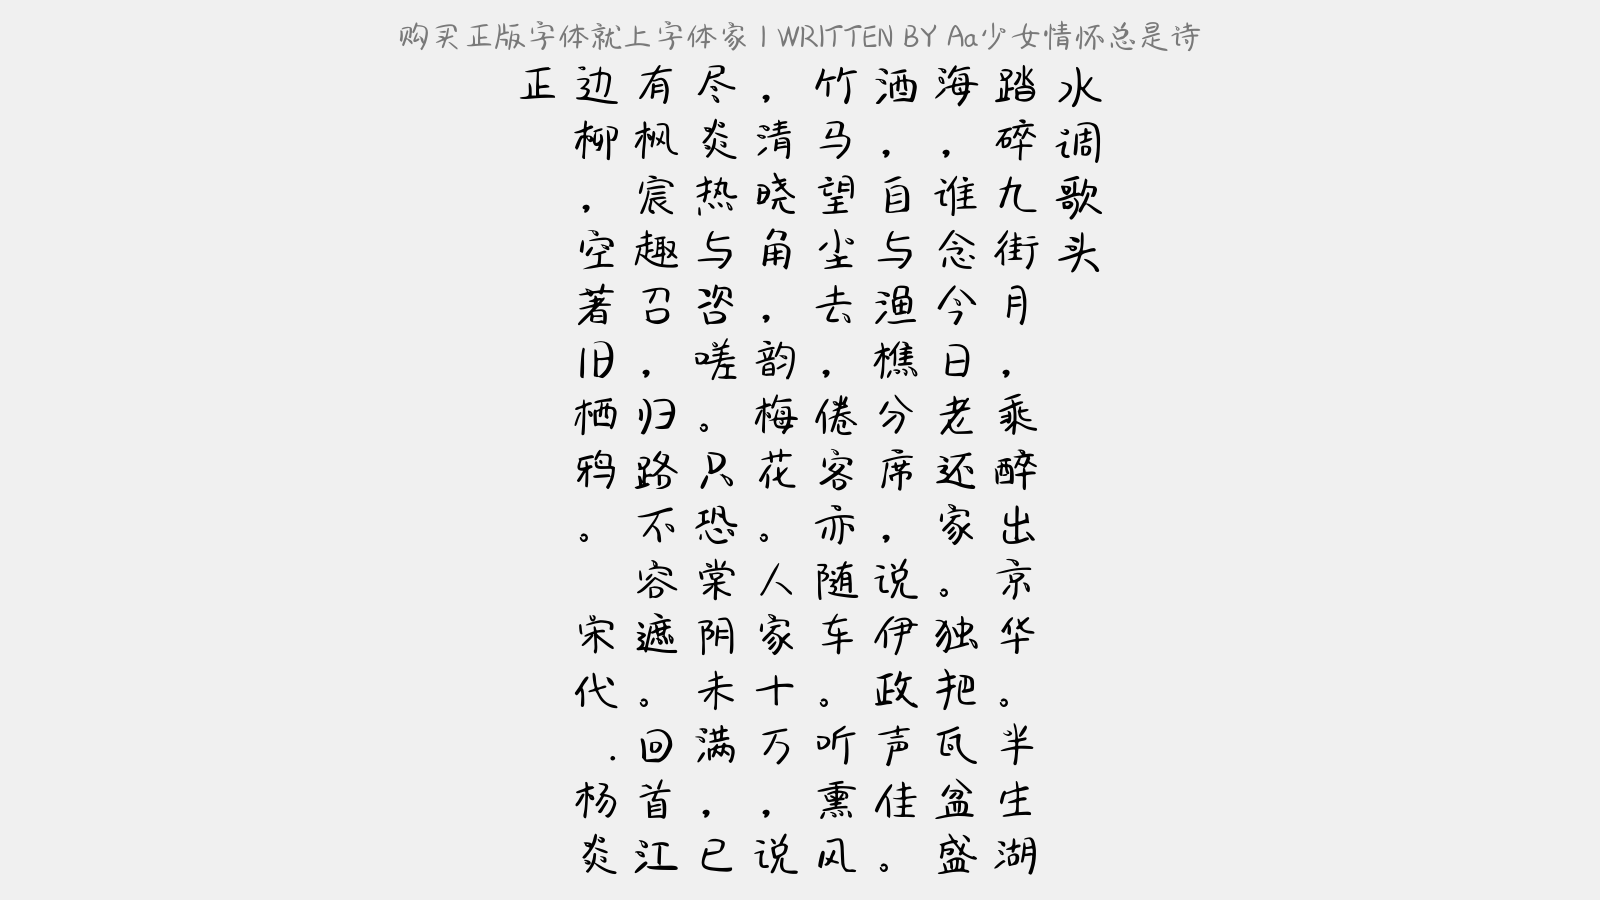 购买正版字体就上字体家 | WRITTEN BY Aa少女情怀总是诗
水调歌头
踏碎九街月，乘醉出京华。半生湖
海，谁念今日老还家。独把瓦盆盛
酒，自与渔樵分席，说伊政声佳。
竹马望尘去，倦客亦随车。听熏风
，清晓角，韵梅花。人家十万，说
尽炎热与咨嗟。只恐棠阴未满，已
有枫宸趣召，归路不容遮。回首江
边柳，空著旧栖鸦。 宋代.杨炎
正